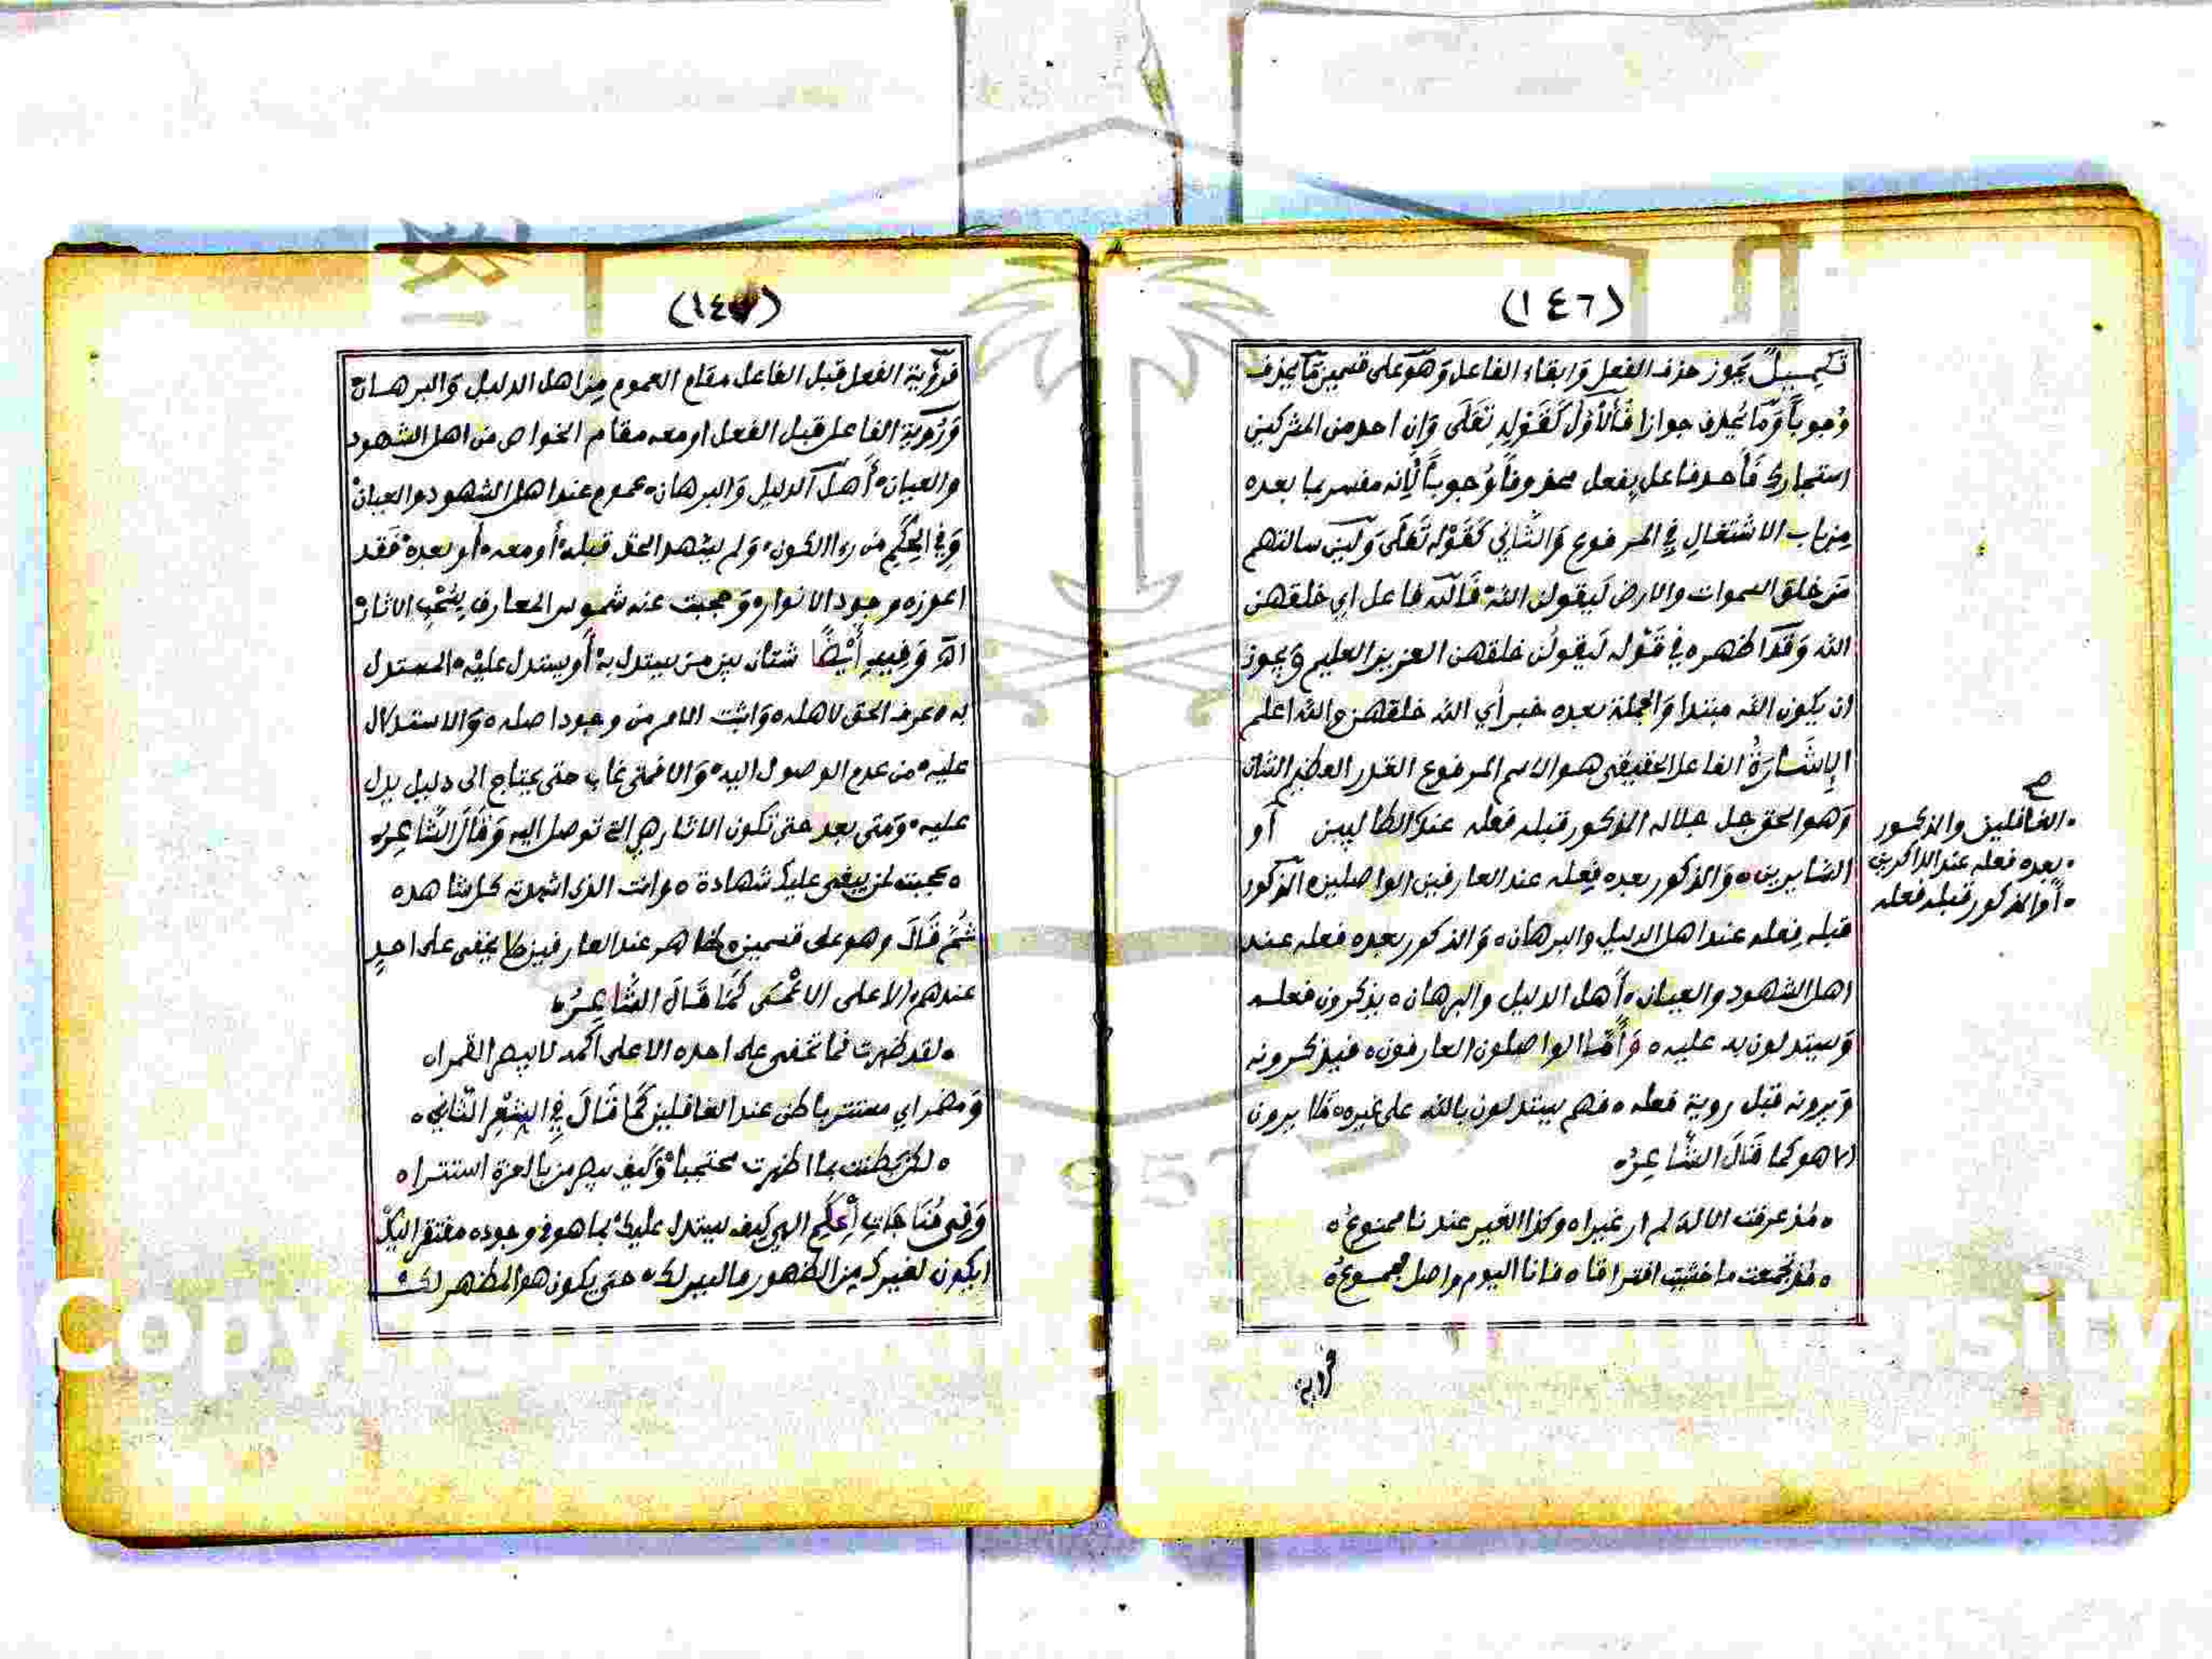 (١٤٦)
تكميل يجوز حذف الفعل وابقاء الفاعل وهو على قسمين ما يحذف
وجوباً وما يحذف جوازا فالأول كقوله تعلى وان احد من المشركين
استجارك فأحد فاعل بفعل محذوف وجوباً لانه مفسر بما بعده
من باب الاشتغال في المرفوع والثاني كقوله تعلى ولئن سالتهم
من خلق السموات والارض ليقولن الله فالله فاعل اي خلقهن
الله وقد اظهره في قوله ليقولن خلقهن العزيز العليم ويجوز
ان يكون الله مبتدا والجملة بعده خبر أي الله خلقهن والله اعلم
الإشارة الفاعل الحقيقي هو الاسم المرفوع القدر العظيم الشان
وهو الحق جل جلاله المذكور قبله فعله عند الطالبين أو
السايرين ه والمذكور بعده فعله عند العارفين الواصلين ه المذكور
قبله فعله عند اهل الدليل والبرهان ه والمذكور بعده فعله عند
اهل الشهود والعيان ه أهل الدليل والبرهان ه يذكرون فعله
ويستدلون به عليه ه وأما الواصلون العارفون ه فيذكرونه
ويرونه قبل روية فعله ه فهم يستدلون بالله على غيره ه فلا يرون
الا هو كما قال الشاعر ه
ه مذ عرفت الاله لم ار غيرا ه وكذا الغير عندنا ممنوع ه
ه مذ تجمعت ما خشيت افتراقا ه فانا اليوم واصل مجموع ه
ه الغافلين والمذكور
ه بعده فعله عند الذاكرين
ه أو المذكور قبله فعله
فروية
(١٤٧)
فرؤية الفعل قبل الفاعل مقام العموم من اهل الدليل والبرهان
ورؤية الفاعل قبل الفعل او معه مقام الخواص من اهل الشهود
والعيان ه أهل الدليل والبرهان ه عموم عند اهل الشهود والعيان ه
وفي الحكم من رءا الكون ه ولم يشهد الحق قبله ه أو معه ه أو بعده ه فقد
اعوزه وجود الانوار ه وحجبت عنه شموس المعارف بسحب الاثار ه
اه وفيه أيضا شتان بين من يستدل به ه أو يستدل عليه ه المستدل
به ه عرف الحق لاهله ه واثبت الامر من وجود اصله ه والاستدلال
عليه ه من عدم الوصول اليه ه والا فمتى غاب حتى يحتاج الى دليل يدل
عليه ه ومتى بعد حتى تكون الاثار هي التي توصل اليه وقال الشاعر ه
ه عجبت لمن يبغي عليك شهادة ه وانت الذي اشهدته كل شاهد ه
ثم قال وهو على قسمين ه ظاهر عند العارفين لا يخفى على احد
عندهم الا على الاعمى كما قال الشاعر ه
ه لقد ظهرت فما تخفى على احد ه الا على أكمه لا يبصر القمرا ه
ومضمر اي مستتر باطن عند الغافلين كما قال في الشعر الثاني ه
ه لكن بطنت بما اظهرت محتجبا ه وكيف يبصر من بالعزة استترا ه
وفي مناجات الحكم الهي كيف يستدل عليك ه بما هو في وجوده مفتقر اليك
ايكون لغيرك من الظهور ما ليس لك ه حتى يكون هو المظهر لك ه
1957
Copy
University